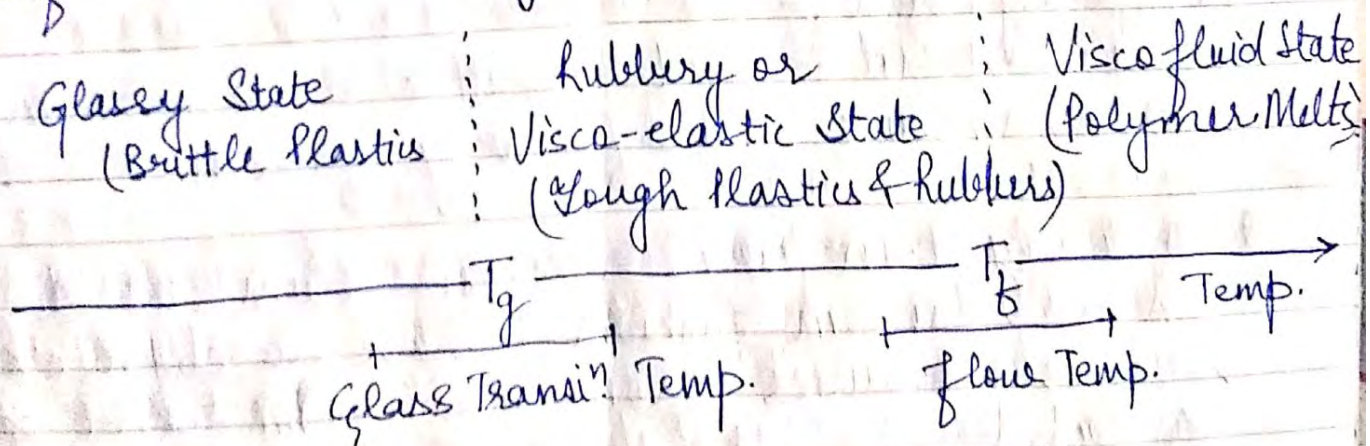 Glassy State
(Brittle Plastics
Rubbery or
Visco-elastic State
(Tough Plastics & Rubbers)
Viscofluid State
(Polymer Melts)
Tg
Tf
Temp.
Glass Transiⁿ. Temp.
flow Temp.